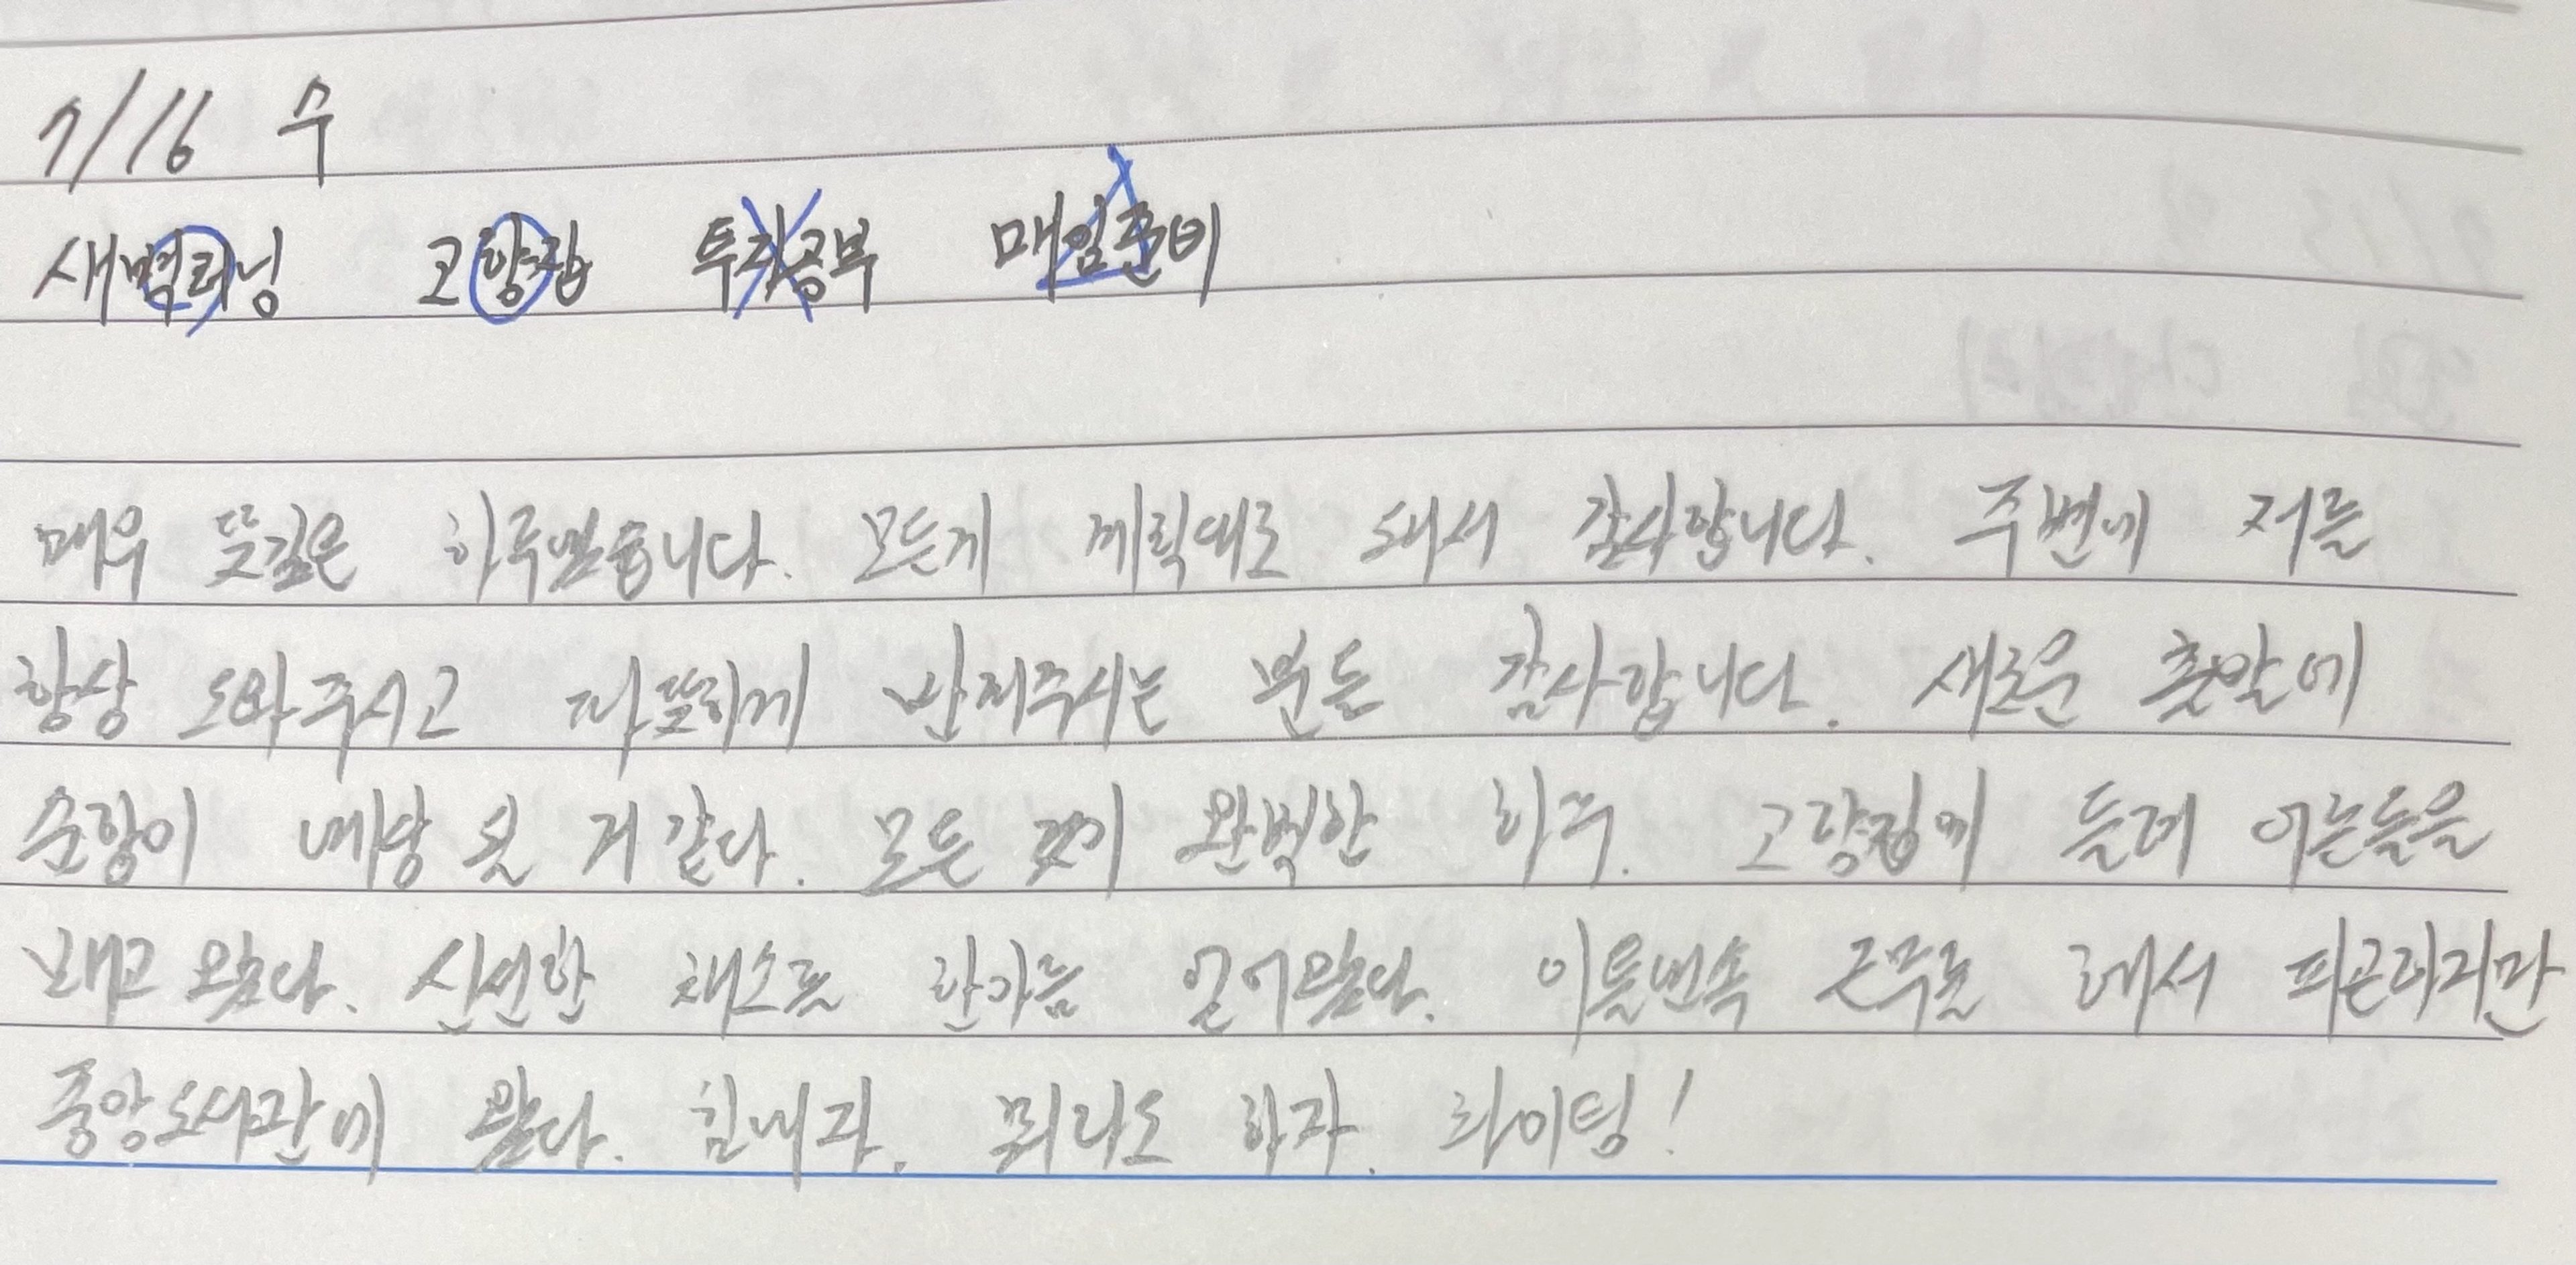 7/16 수
새벽러닝 고향집 투자공부 매임준비
매우 뜻깊은 하루였습니다. 모든게 계획대로 돼서 감사합니다. 주변에 저를
항상 도와주시고 따뜻하게 반겨주시는 분들 감사합니다. 새로운 출발에
순항이 예상 된 거 같다. 모든 것이 완벽한 하루. 고향집에 들려 어른들을
뵙고 왔다. 신선한 채소를 한가득 얻어왔다. 이틀연속 근무를 해서 피곤하지만
중앙도서관에 왔다. 힘내자. 뭐라도 하자. 화이팅!